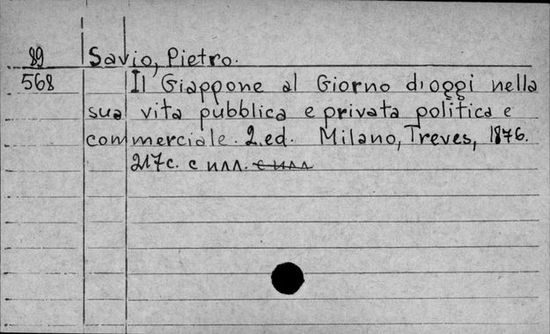 89 Savio, Pietro.
568 Il Giappone al Giorno d'oggi nella
sua vita pubblica e privata politica e
commerciale. 2.ed. Milano, Treves, 1876.
217c. с илл. с илл